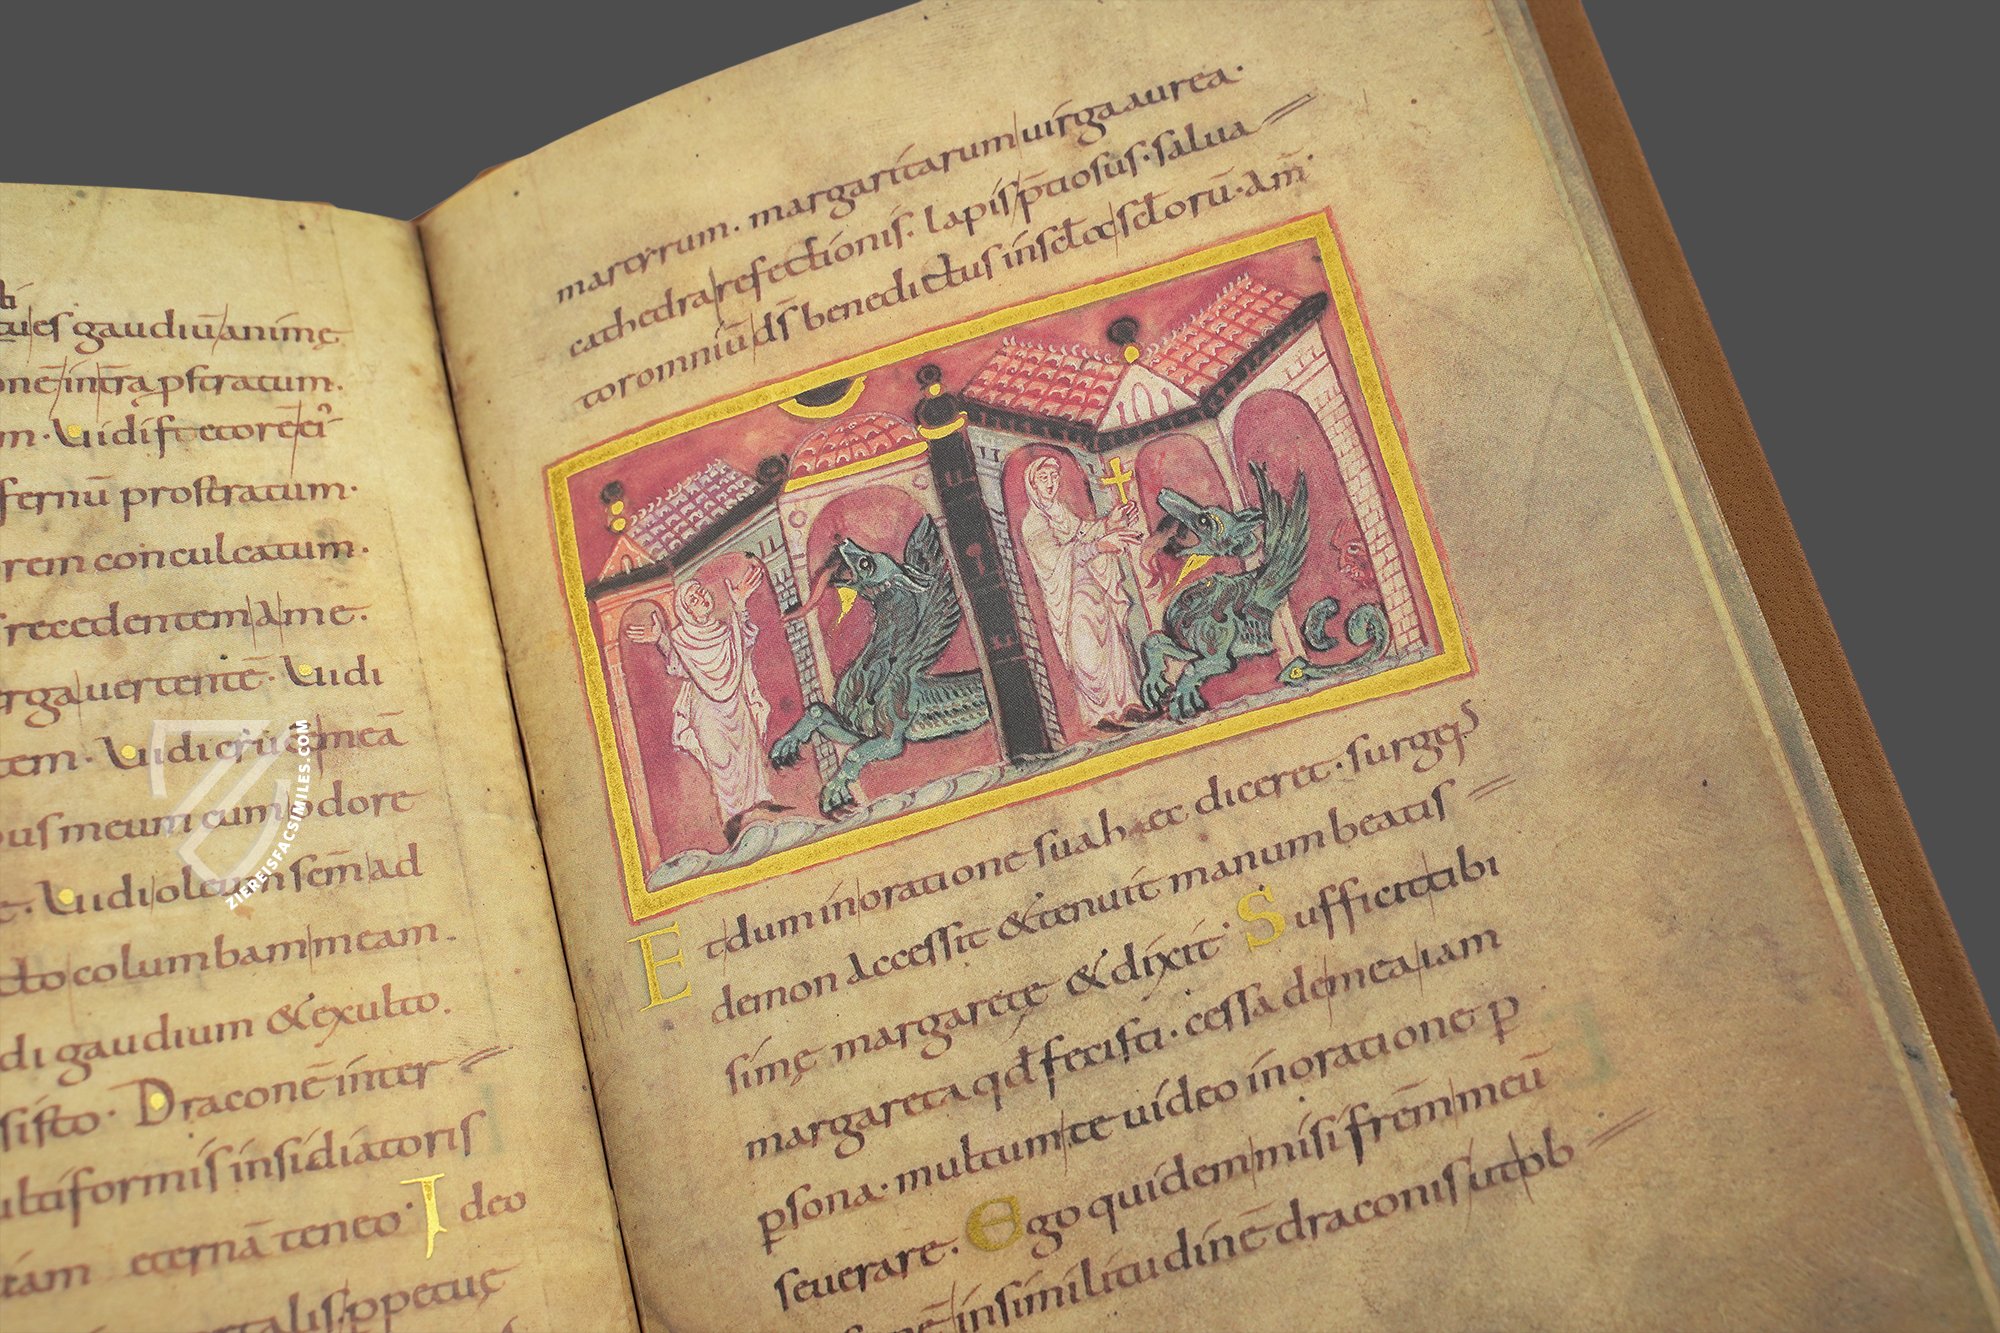 gaudiū animę
intra pstratum.
Uidi
fernū prostratum.
rem conculcatum.
recedentem a me.
uertentē. Uidi
tem. Uidi meā
meum cum odore
Uidi oleum sem ad
columbam meam.
di gaudium & exulto.
sisto. Draconē inter
ultiformis insidiatoris
eternā teneo. Ideo
ppetuę
martyrum. margaritarum uirga aurea.
cathedra refectionis. lapis ptiosus. salua
tor omniū ds benedictus in scła scłorū. am
Et dum in oratione suah et diceret. surges
demon accessit & tenuit manum beatis
simę margarete & dixit. Sufficit tibi
margareta qd fecisti. cessa de mea iam
psona. multum te uideo in oratione p
seuerare. Ego quidem misi frēm meū
in similitudinē draconis ut ob
ZIEREISFACSIMILES.COM